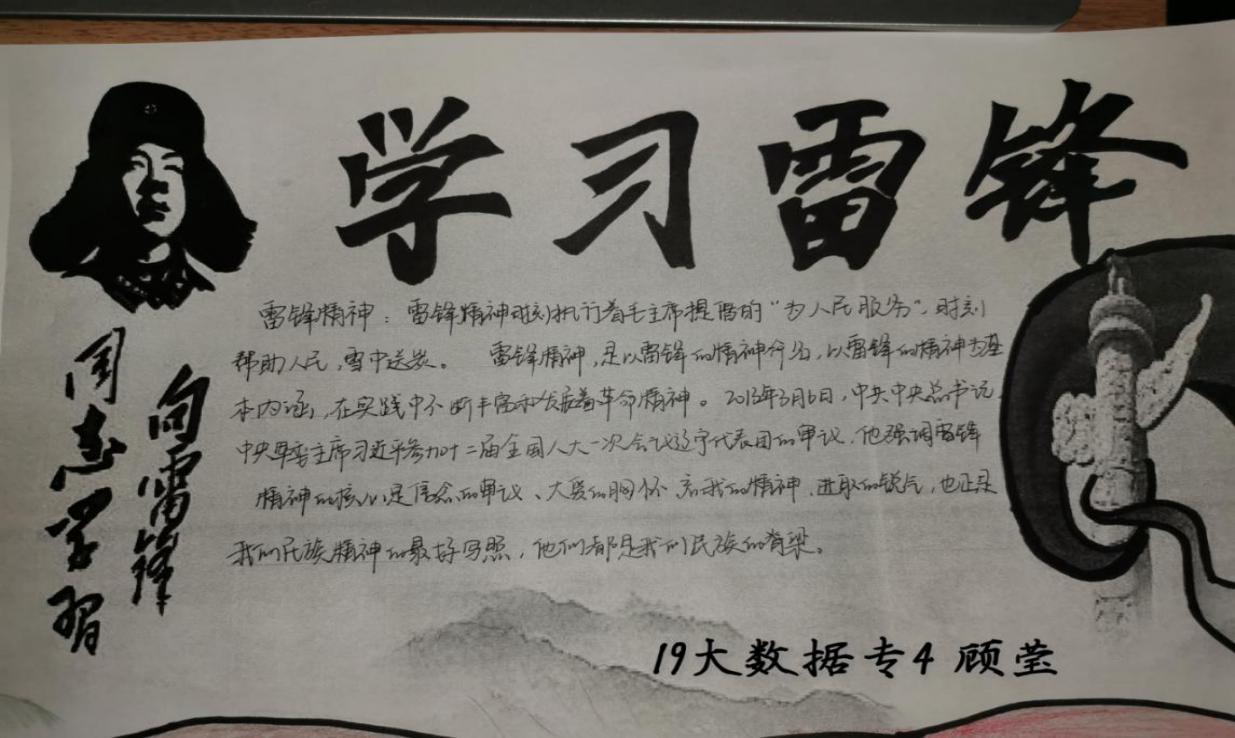 学习雷锋
向雷锋
同志学习
雷锋精神：雷锋精神时刻执行着毛主席提倡的“为人民服务”，时刻
帮助人民，雪中送炭。 雷锋精神，是以雷锋的精神行为，以雷锋的精神为基
本内涵，在实践中不断丰富和发展着革命精神。2013年3月6日，中共中央总书记，
中央军委主席习近平参加十二届全国人大一次会议辽宁代表团的审议，他强调雷锋
精神的核心是信念的审议、大爱的胸怀 忘我的精神，进取的锐气，也正是
我们民族精神的最好写照，他们都是我们民族的脊梁。
19大数据专4 顾莹